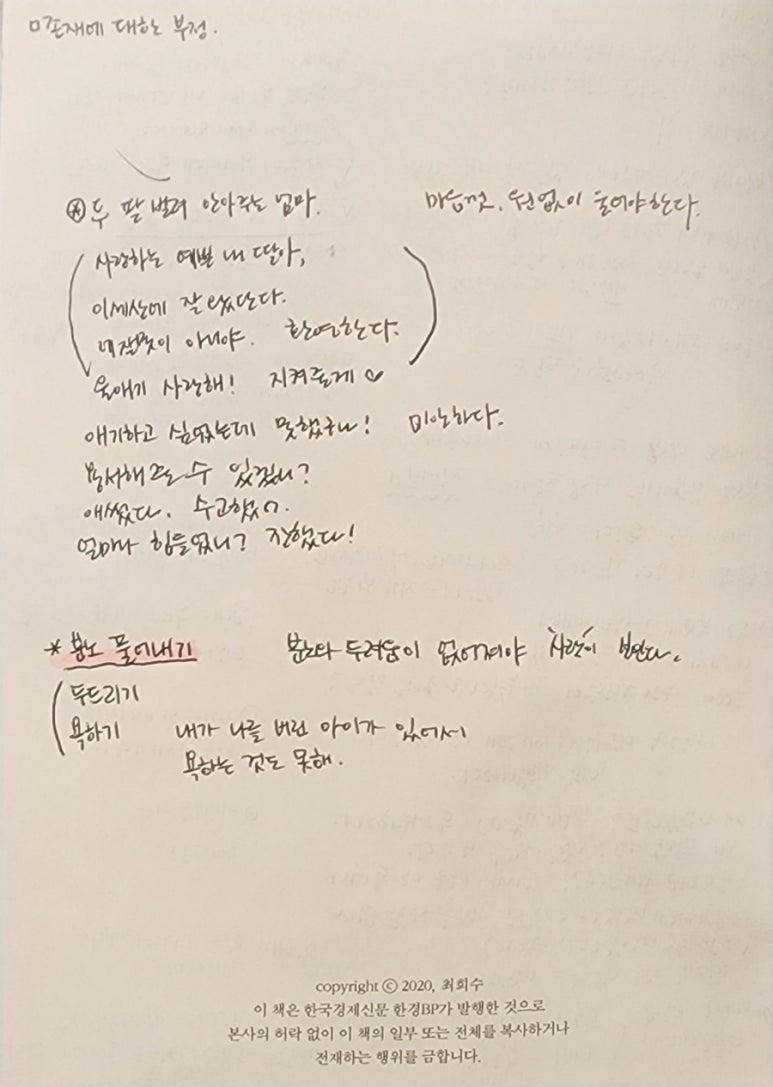 ㅁ존재에 대한 부정.
⊛ 두 팔 벌려 안아주는 엄마. 마음껏, 원없이 울어야한다.
사랑하는 예쁜 내 딸아,
이세상에 잘 왔단다.
네잘못이 아니야. 환영한다.
울애기 사랑해! 지켜줄게 ♡
얘기하고 싶었는데 못했구나! 미안하다.
용서해줄 수 있겠니?
애썼다. 수고했어.
얼마나 힘들었니? 잘했다!
* 분노 풀어내기 분노와 두려움이 없어져야 '사랑'이 보인다.
두드리기
욕하기 내가 나를 버린 아이가 있어서
욕하는 것도 못해.
copyright ⓒ 2020, 최희수
이 책은 한국경제신문 한경BP가 발행한 것으로
본사의 허락 없이 이 책의 일부 또는 전체를 복사하거나
전재하는 행위를 금합니다.